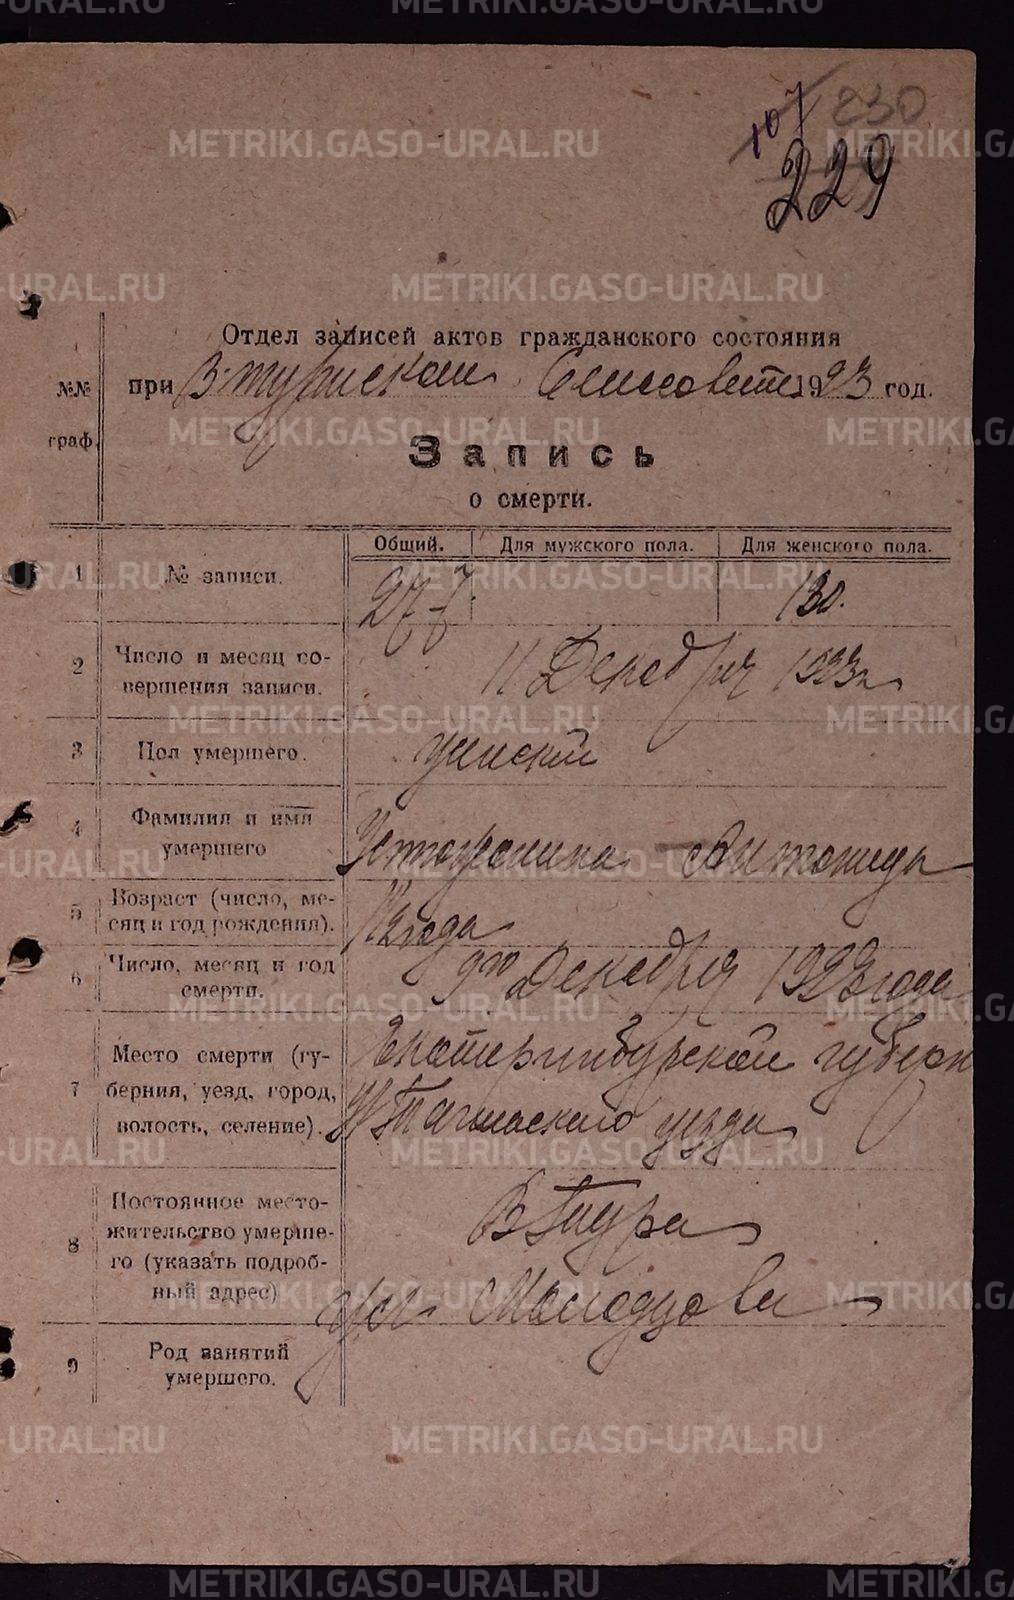 METRIKI.GASO-URAL.RU
107 230
229
Отдел записей актов гражданского состояния
№№ граф.
при В-Турнском Сельсовете 1923 год.
Запись
о смерти.
Общий. Для мужского пола. Для женского пола.
1 № записи. 130.
2 Число и месяц совершения записи. 11 Декабря 1923 г.
3 Пол умершего. женский
4 Фамилия и имя умершего
5 Возраст (число, месяц и год рождения). 1/2 года
6 Число, месяц и год смерти. 9го Декабря 1923 года
7 Место смерти (губерния, уезд, город, волость, селение). Екатеринбургской губерн
Н Тагильского уезда
8 Постоянное местожительство умершего (указать подробный адрес) В Тура
ул Молодцова
9 Род занятий умершего.